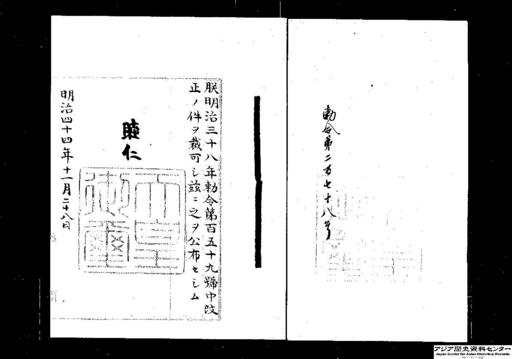 勅令第二百七十八号
朕明治三十八年勅令第百五十九號中改
正ノ件ヲ裁可シ茲ニ之ヲ公布セシム
睦仁
天皇御璽
明治四十四年十一月二十八日
アジア歴史資料センター
Japan Center for Asian Historical Records